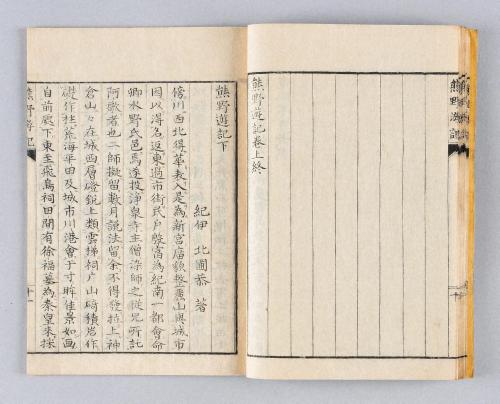 熊野遊記
熊野遊記卷上終
熊野遊記下
紀伊 北圃恭 著
傍川西北得華表入是為新宮廟貌整麗山與城市
因以得名返東過市街民戶殷富為紀南一都會命
卿水野氏邑焉遂投淨泉寺主僧染師之從兄所託
阿敬者也二師擬留數月説法留余不得發特上神
倉山々在城西層磴鋭上類雲梯祠戶山崎積岩作
礎作柱荒海平田及城市川港會于寸眸佳景如画
自前殿下東至飛鳥祠田間有徐福墓為秦皇來採
熊野遊記
十一